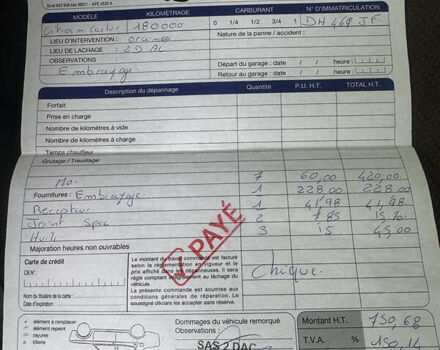 Siret 832 568 466 00011 - APE 4520 A
MODÈLE KILOMÉTRAGE CARBURANT N° D'IMMATRICULATION
180000 0 1/4 1/2 3/4 1 DH 469 JF
LIEU D'INTERVENTION : Nature de la panne / accident :
LIEU DE LACHAGE : 2D AC
OBSERVATIONS Départ du garage : date / / heure :
Embrayage Retour au garage : date / / heure :
Description du dépannage Quantité P.U. H.T. TOTAL H.T.
Forfait
Prise en charge
Nombre de kilomètres à vide
Nombre de kilomètres à charge
Temps chauffeur
Grutage / Treuillage
Mo. 7 60,00 420,00
Fournitures : Embrayage 1 228,00 228,00
Récepteur 1 41,98 41,98
Joint Spec 2 7.85 15,70
Huile 3 15 45,00
PAYÉ
Majoration heures non ouvrables
Carte de crédit
CB N° :
Nom du titulaire de la carte :
Date d'expiration :
Le montant des travaux commandés est facturé
selon la réglementation en vigueur et le
prix affiché dans les dépanneuses. Il sera
réglé comptant également au lâchage du
véhicule.
La présente commande est soumise aux
conditions générales de réparation. Le
soussigné déclare les accepter sans réserve.
Chèque
élément à remplacer
élément repeint
rayures
tôlerie
Dommages du véhicule remorqué
Observations :
SAS 2 DAC
Montant H.T. 750,68
T.V.A. 150,14